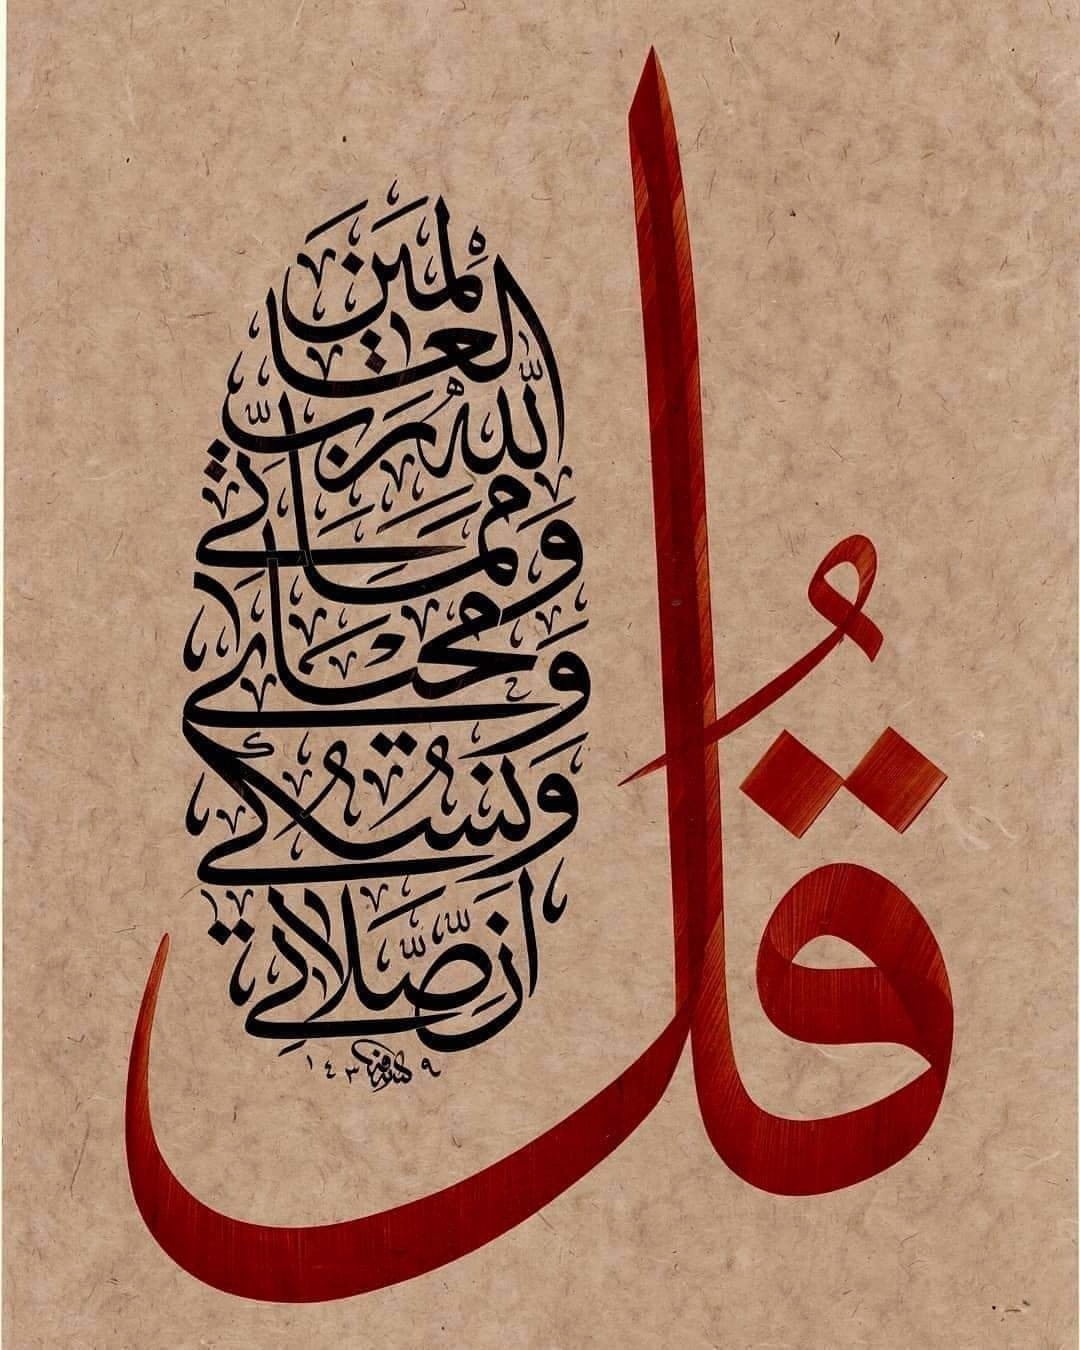 قُلْ
إِنَّ صَلَاتِي
وَنُسُكِي
وَمَحْيَايَ
وَمَمَاتِي
لِلَّهِ رَبِّ
الْعَالَمِينَ
١٤٣٩